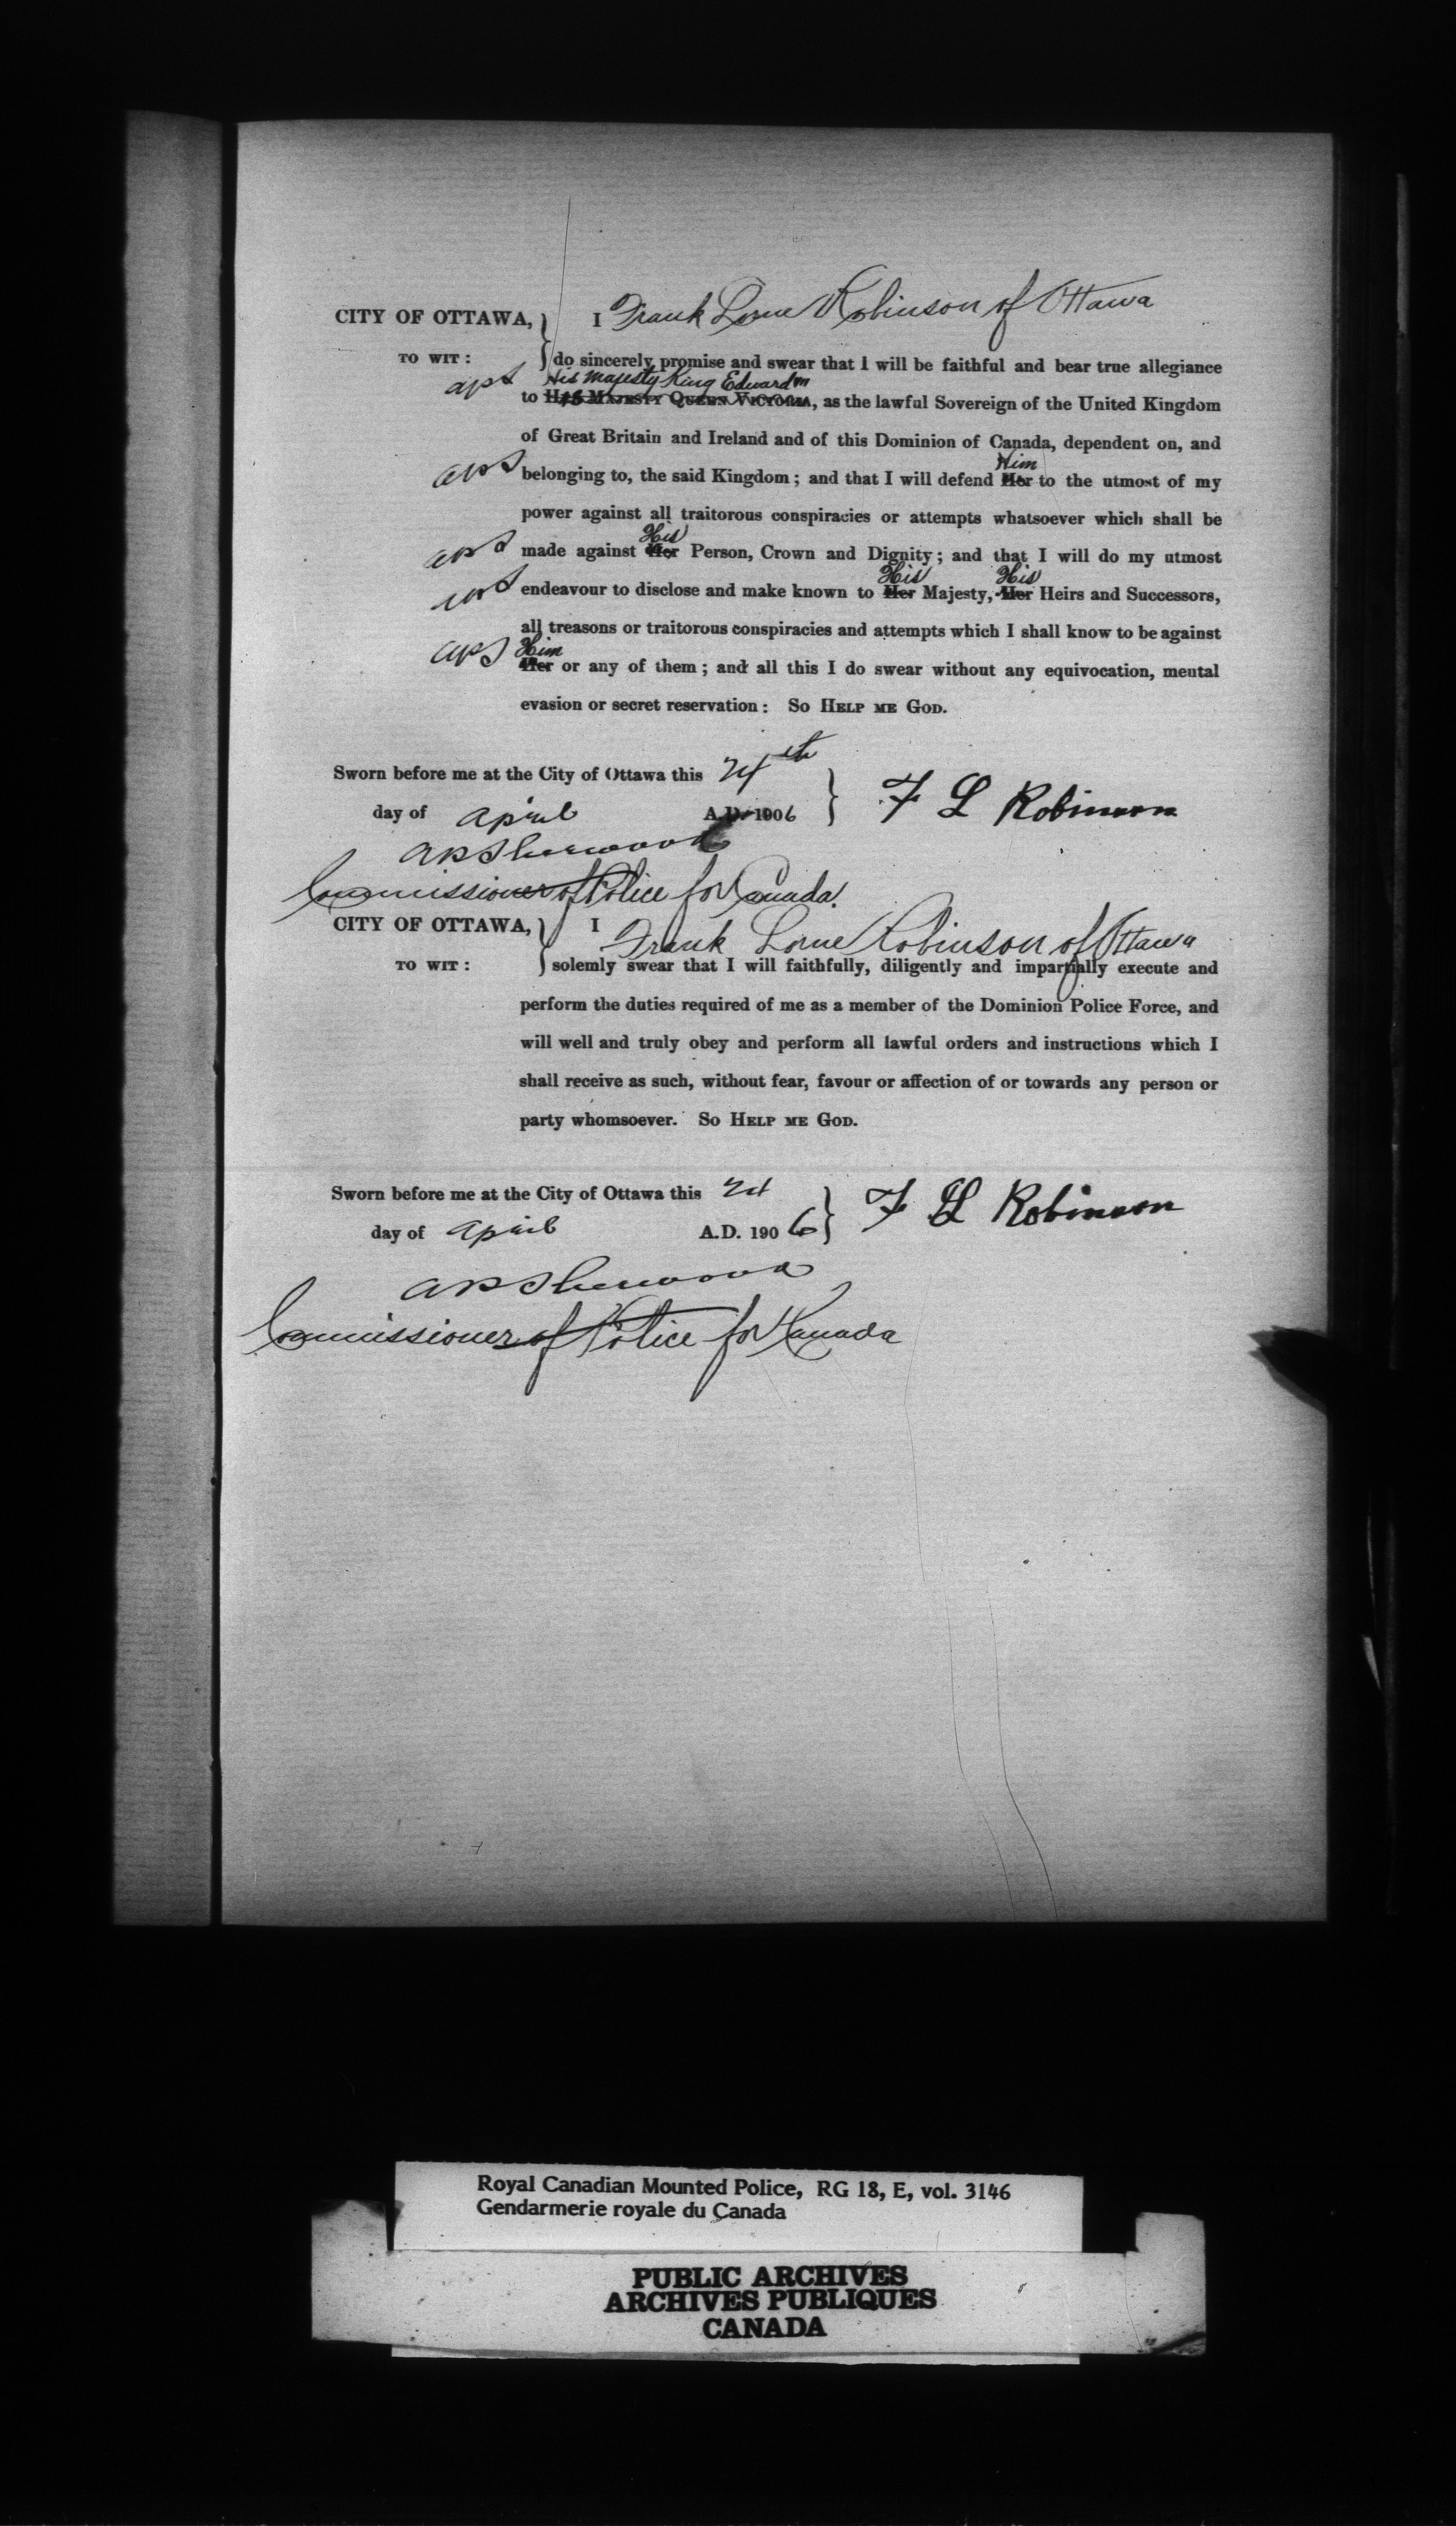 CITY OF OTTAWA, I Frank Lorne Robinson of Ottawa
TO WIT : do sincerely promise and swear that I will be faithful and bear true allegiance
His Majesty King Edward VII
aps to Her Majesty Queen Victoria, as the lawful Sovereign of the United Kingdom
of Great Britain and Ireland and of this Dominion of Canada, dependent on, and
Him
aps belonging to, the said Kingdom ; and that I will defend Her to the utmost of my
power against all traitorous conspiracies or attempts whatsoever which shall be
His
aps made against Her Person, Crown and Dignity ; and that I will do my utmost
His His
aps endeavour to disclose and make known to Her Majesty, Her Heirs and Successors,
all treasons or traitorous conspiracies and attempts which I shall know to be against
Him
aps Her or any of them ; and all this I do swear without any equivocation, mental
evasion or secret reservation : So Help me God.
Sworn before me at the City of Ottawa this 24th
day of April A.D. 1906 F L Robinson
A P Sherwood
Commissioner of Police for Canada.
CITY OF OTTAWA, I Frank Lorne Robinson of Ottawa
TO WIT : solemly swear that I will faithfully, diligently and impartially execute and
perform the duties required of me as a member of the Dominion Police Force, and
will well and truly obey and perform all lawful orders and instructions which I
shall receive as such, without fear, favour or affection of or towards any person or
party whomsoever. So Help me God.
Sworn before me at the City of Ottawa this 24
day of April A.D. 1906 F L Robinson
A P Sherwood
Commissioner of Police for Canada
Royal Canadian Mounted Police, RG 18, E, vol. 3146
Gendarmerie royale du Canada
PUBLIC ARCHIVES
ARCHIVES PUBLIQUES
CANADA